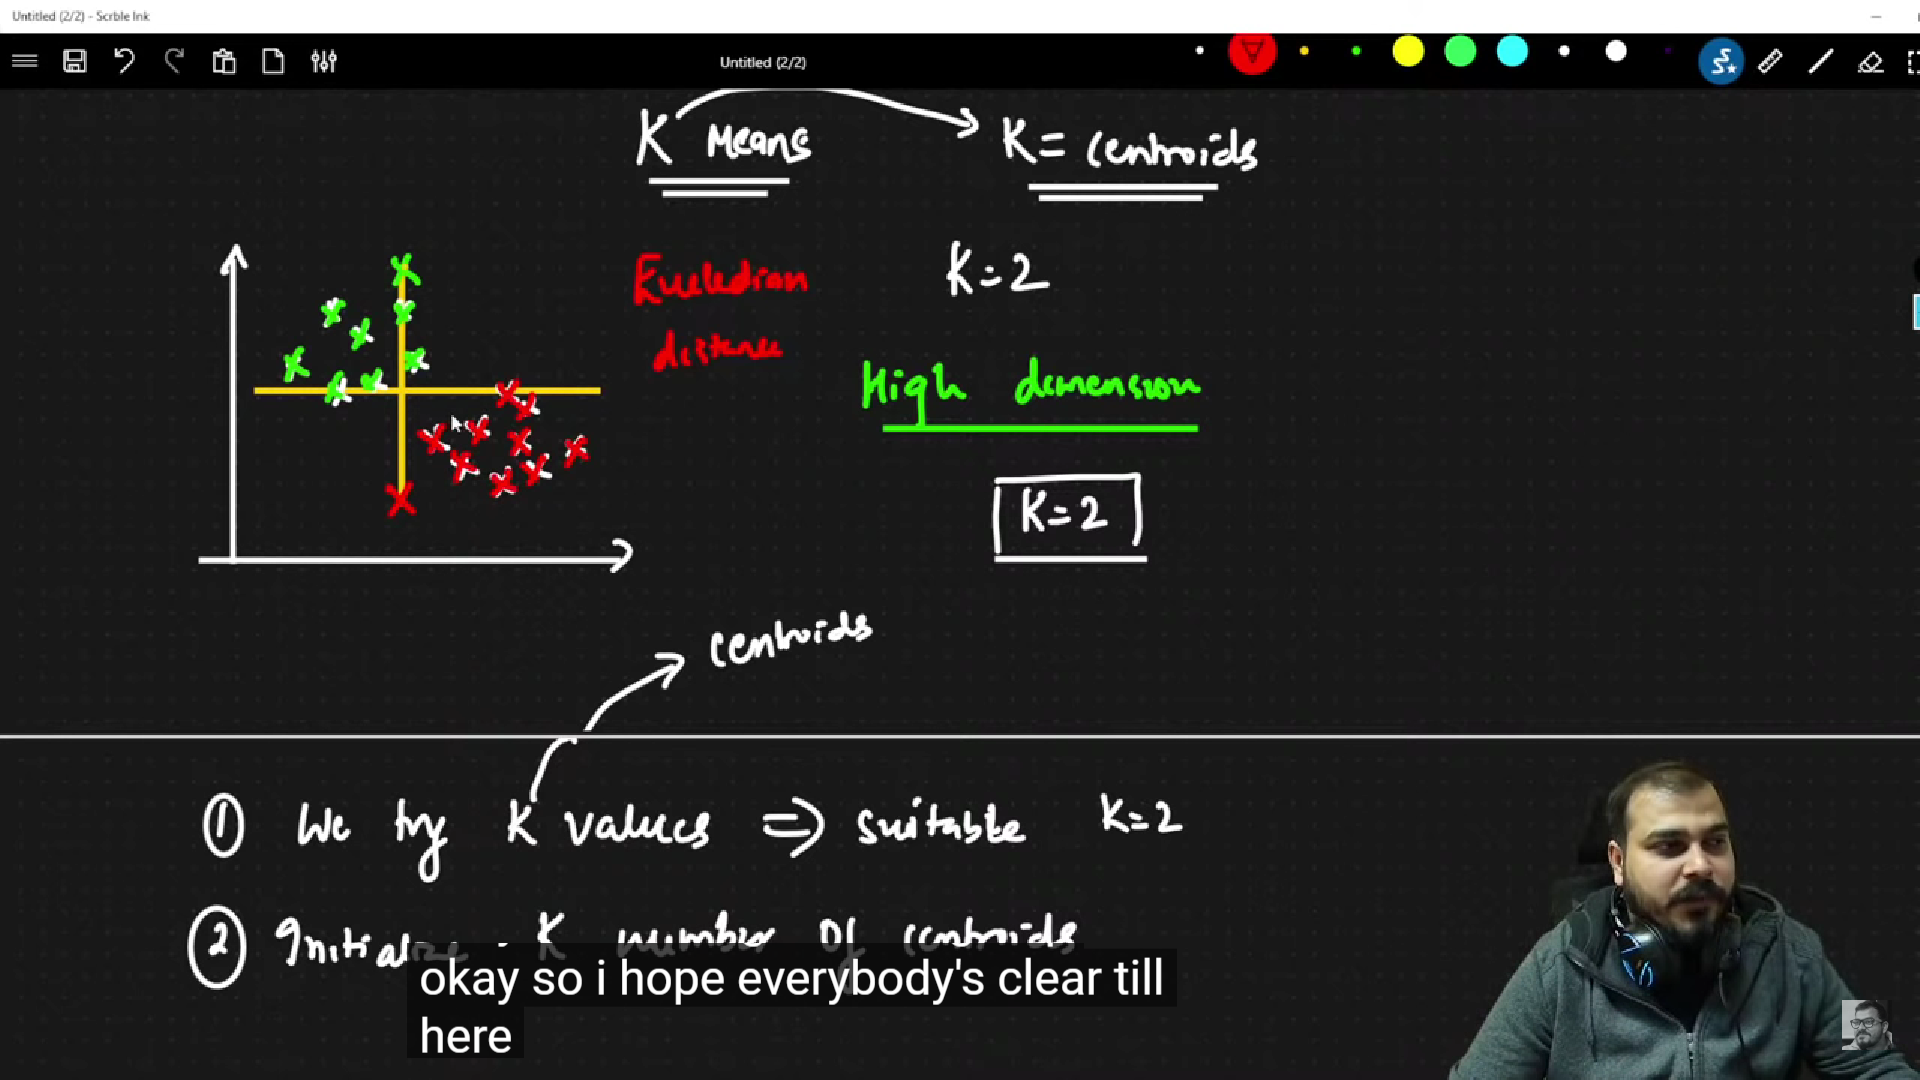 Untitled (2/2) - Scrble Ink
Untitled (2/2)
K Means
K= Centroids
Eucledian
distance
K=2
High dimension
K=2
centroids
① We try K values => suitable K=2
② Initialize K number of centroids
okay so i hope everybody's clear till
here